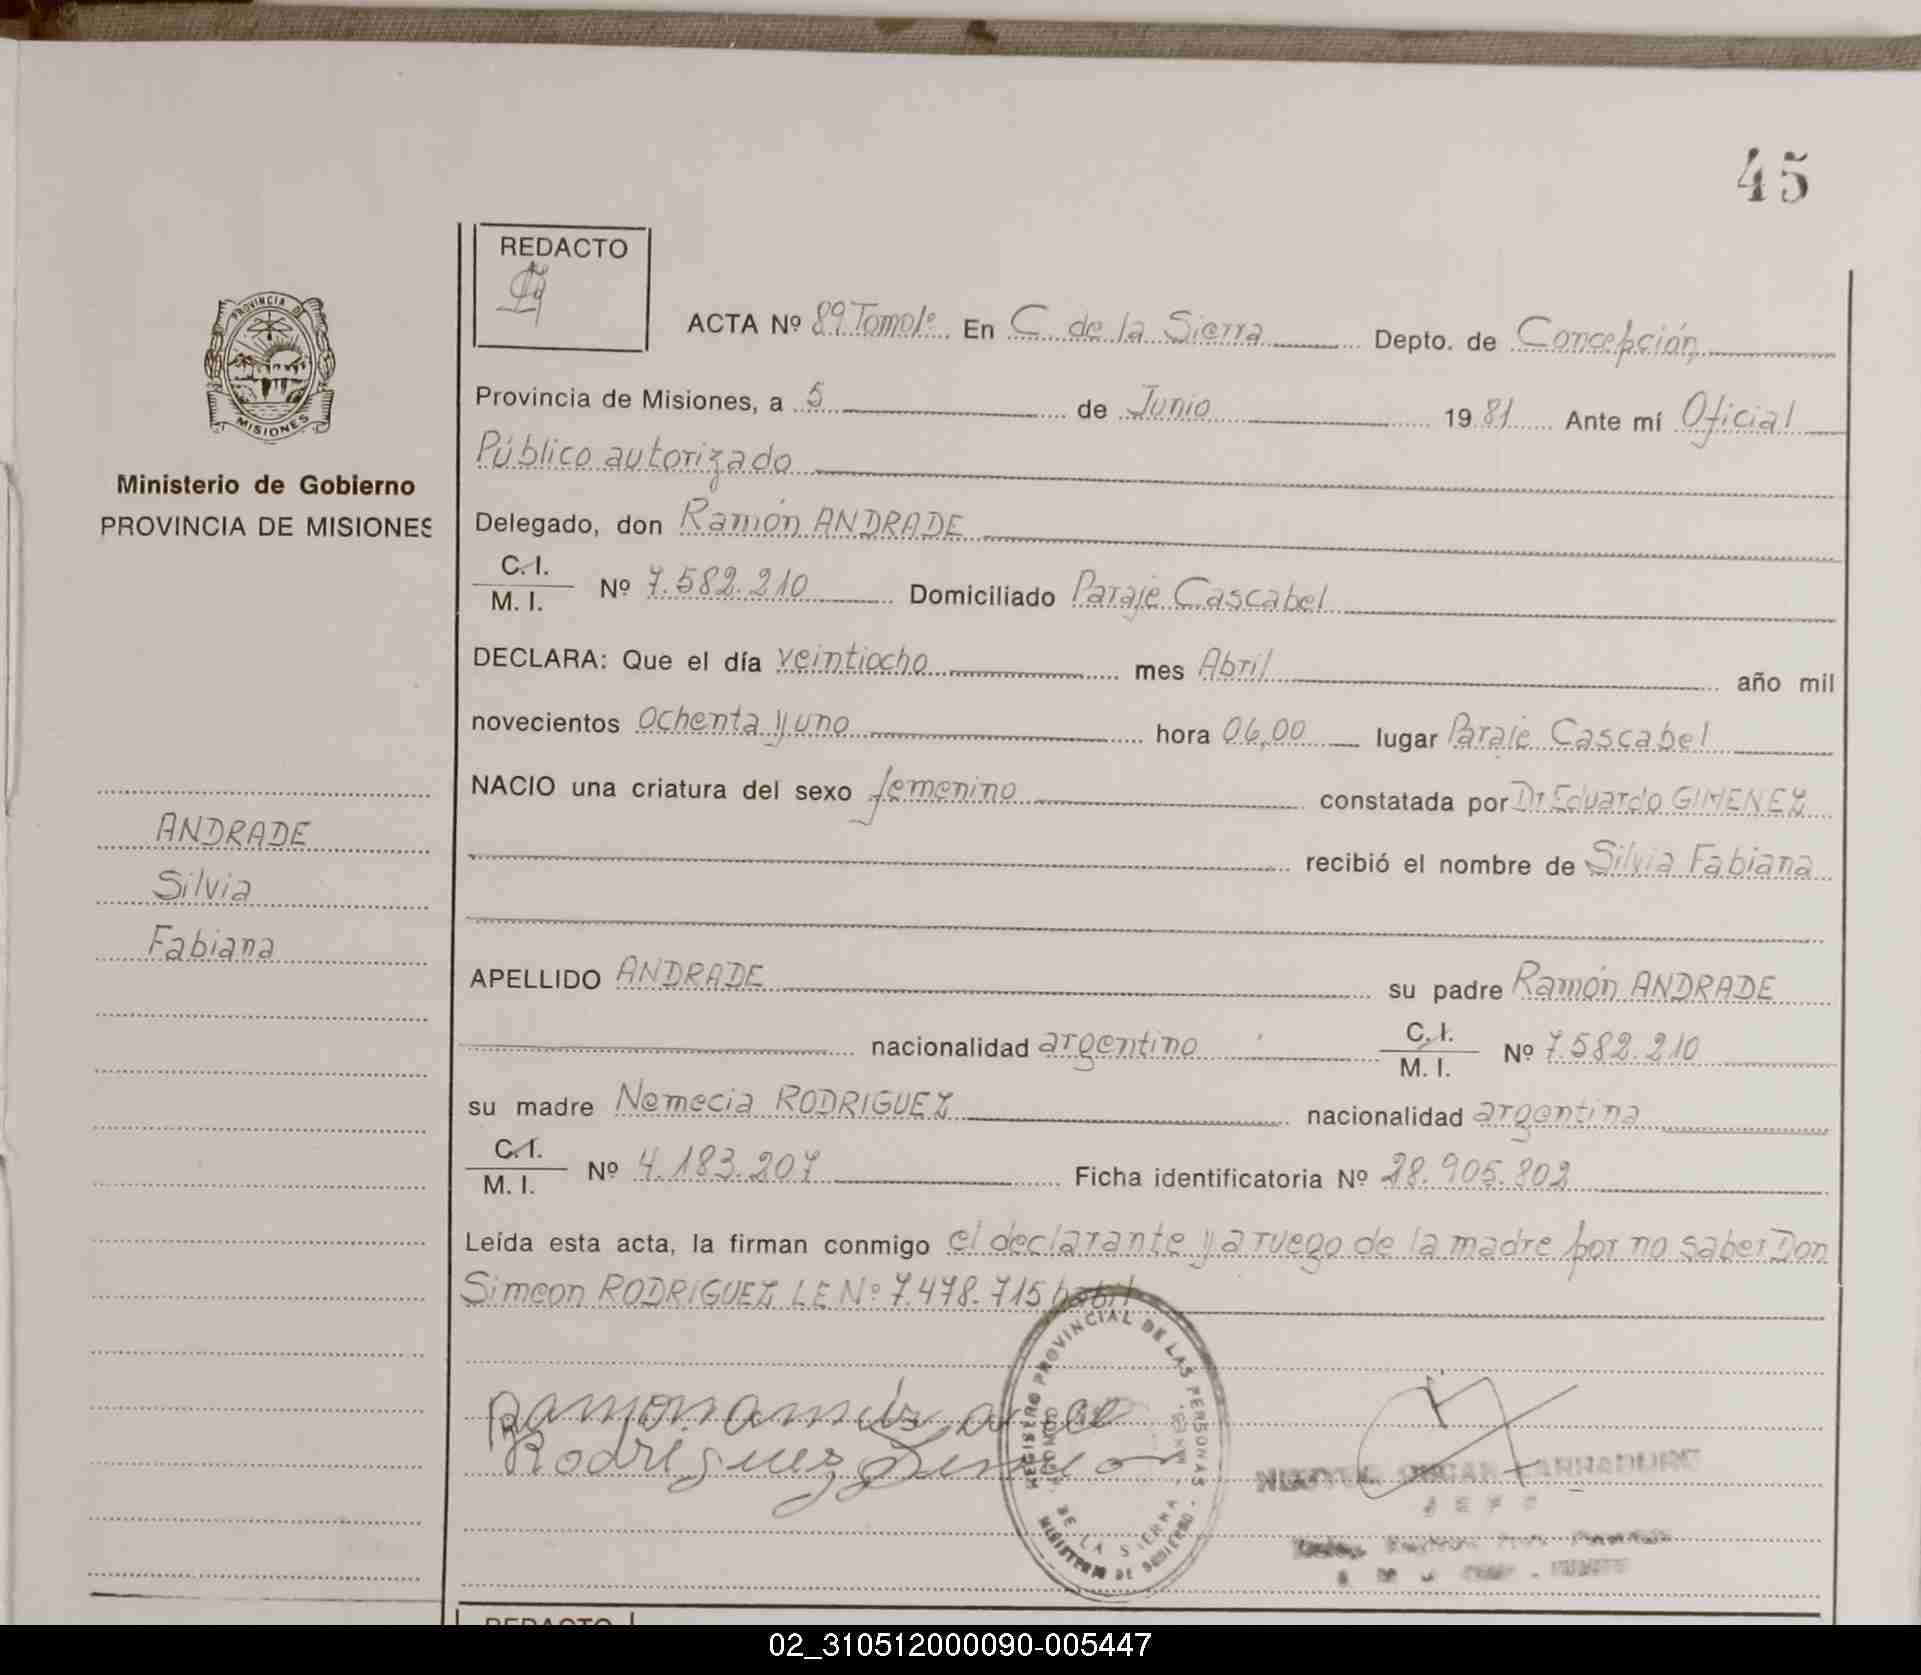 45
REDACTO
ACTA Nº 89 Tomo 1º En C. de la Sierra Depto. de Concepción
PROVINCIA DE
MISIONES
Provincia de Misiones, a 5 de Junio 1981 Ante mí Oficial
Público autorizado
Ministerio de Gobierno
PROVINCIA DE MISIONES
Delegado, don Ramón ANDRADE
C.I.
M.I. Nº 7.582.210 Domiciliado Paraje Cascabel
DECLARA: Que el día veintiocho mes Abril año mil
novecientos ochenta y uno hora 06,00 lugar Paraje Cascabel
NACIO una criatura del sexo femenino constatada por Dr Eduardo GIMENEZ
recibió el nombre de Silvia Fabiana
ANDRADE
Silvia
Fabiana
APELLIDO ANDRADE su padre Ramón ANDRADE
nacionalidad argentino C.I.
M.I. Nº 7.582.210
su madre Nemecia RODRIGUEZ nacionalidad argentina
C.I.
M.I. Nº 4.183.207 Ficha identificatoria Nº 28.905.802
Leída esta acta, la firman conmigo el declarante y a ruego de la madre por no saber Don
Simeon RODRIGUEZ LE Nº 7.478.715 habil
Rodriguez Simeon
REGISTRO PROVINCIAL DE LAS PERSONAS
DE LA SIERRA
MINISTERIO DE GOBIERNO
OSCAR
JEFE
REDACTO
02_310512000090-005447